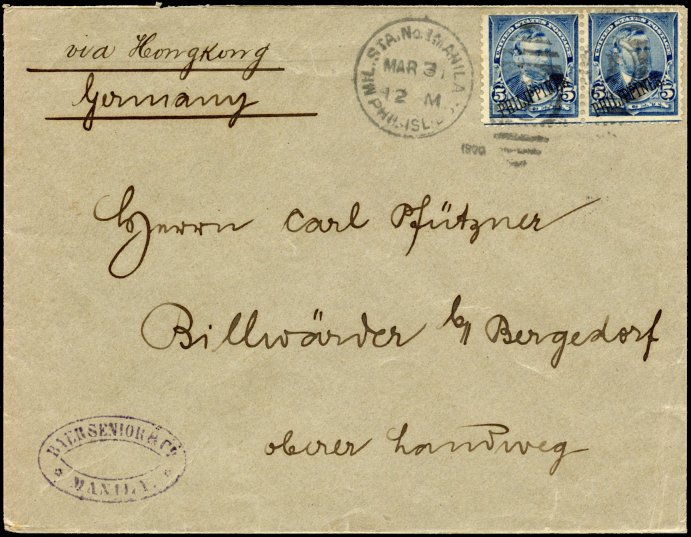 via Hongkong
Germany
MIL. STA. No. 1 MANILA
MAR 31
12 M
PHIL. ISL'DS.
1900
PHILIPPINES
5 5
PHILIPPINES
5 5
Herrn Carl Pfützner
Billwärder b/ Bergedorf
oberer Landweg
BAER SENIOR & Co.
MANILA.